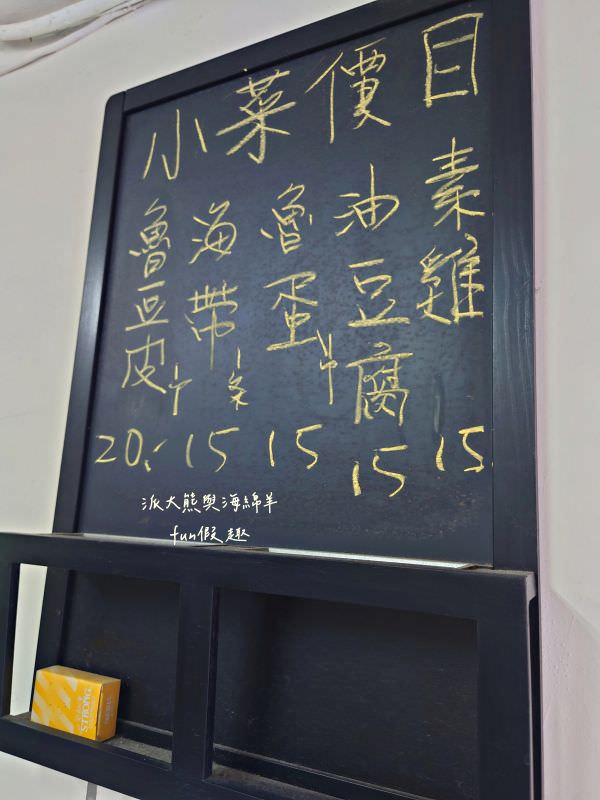 小菜價目
魯豆皮 20.-
海帶 1条 15
魯蛋 15
油豆腐 15
素雞 15
派大熊與海綿羊
fun假趣
STRONG